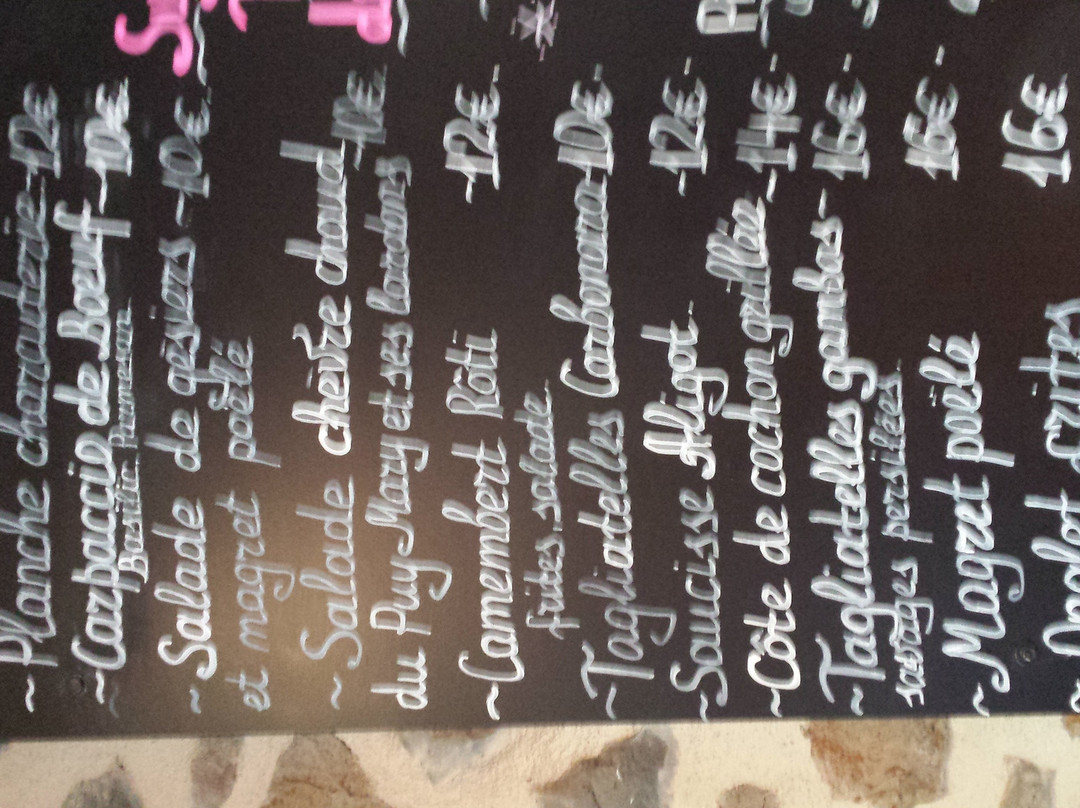 ~ Planche charcuterie - 12€
~ Carpaccio de Boeuf - 10€
Basilic Parmesan
~ Salade de gésiers - 10€ -
et magret poêlé
~ Salade chèvre chaud - 10€
du Puy Mary et ses lardons
~ Camembert Rôti - 12€ -
frites, salade
~ Tagliatelles Carbonara - 10€ -
~ Saucisse Aligot - - 12€ -
~ Côte de cochon grillée - 14€ -
~ Tagliatelles gambas - 16€ -
sauvages persillées -
~ Magret poêlé - 16€ -
~ Onglet 16€